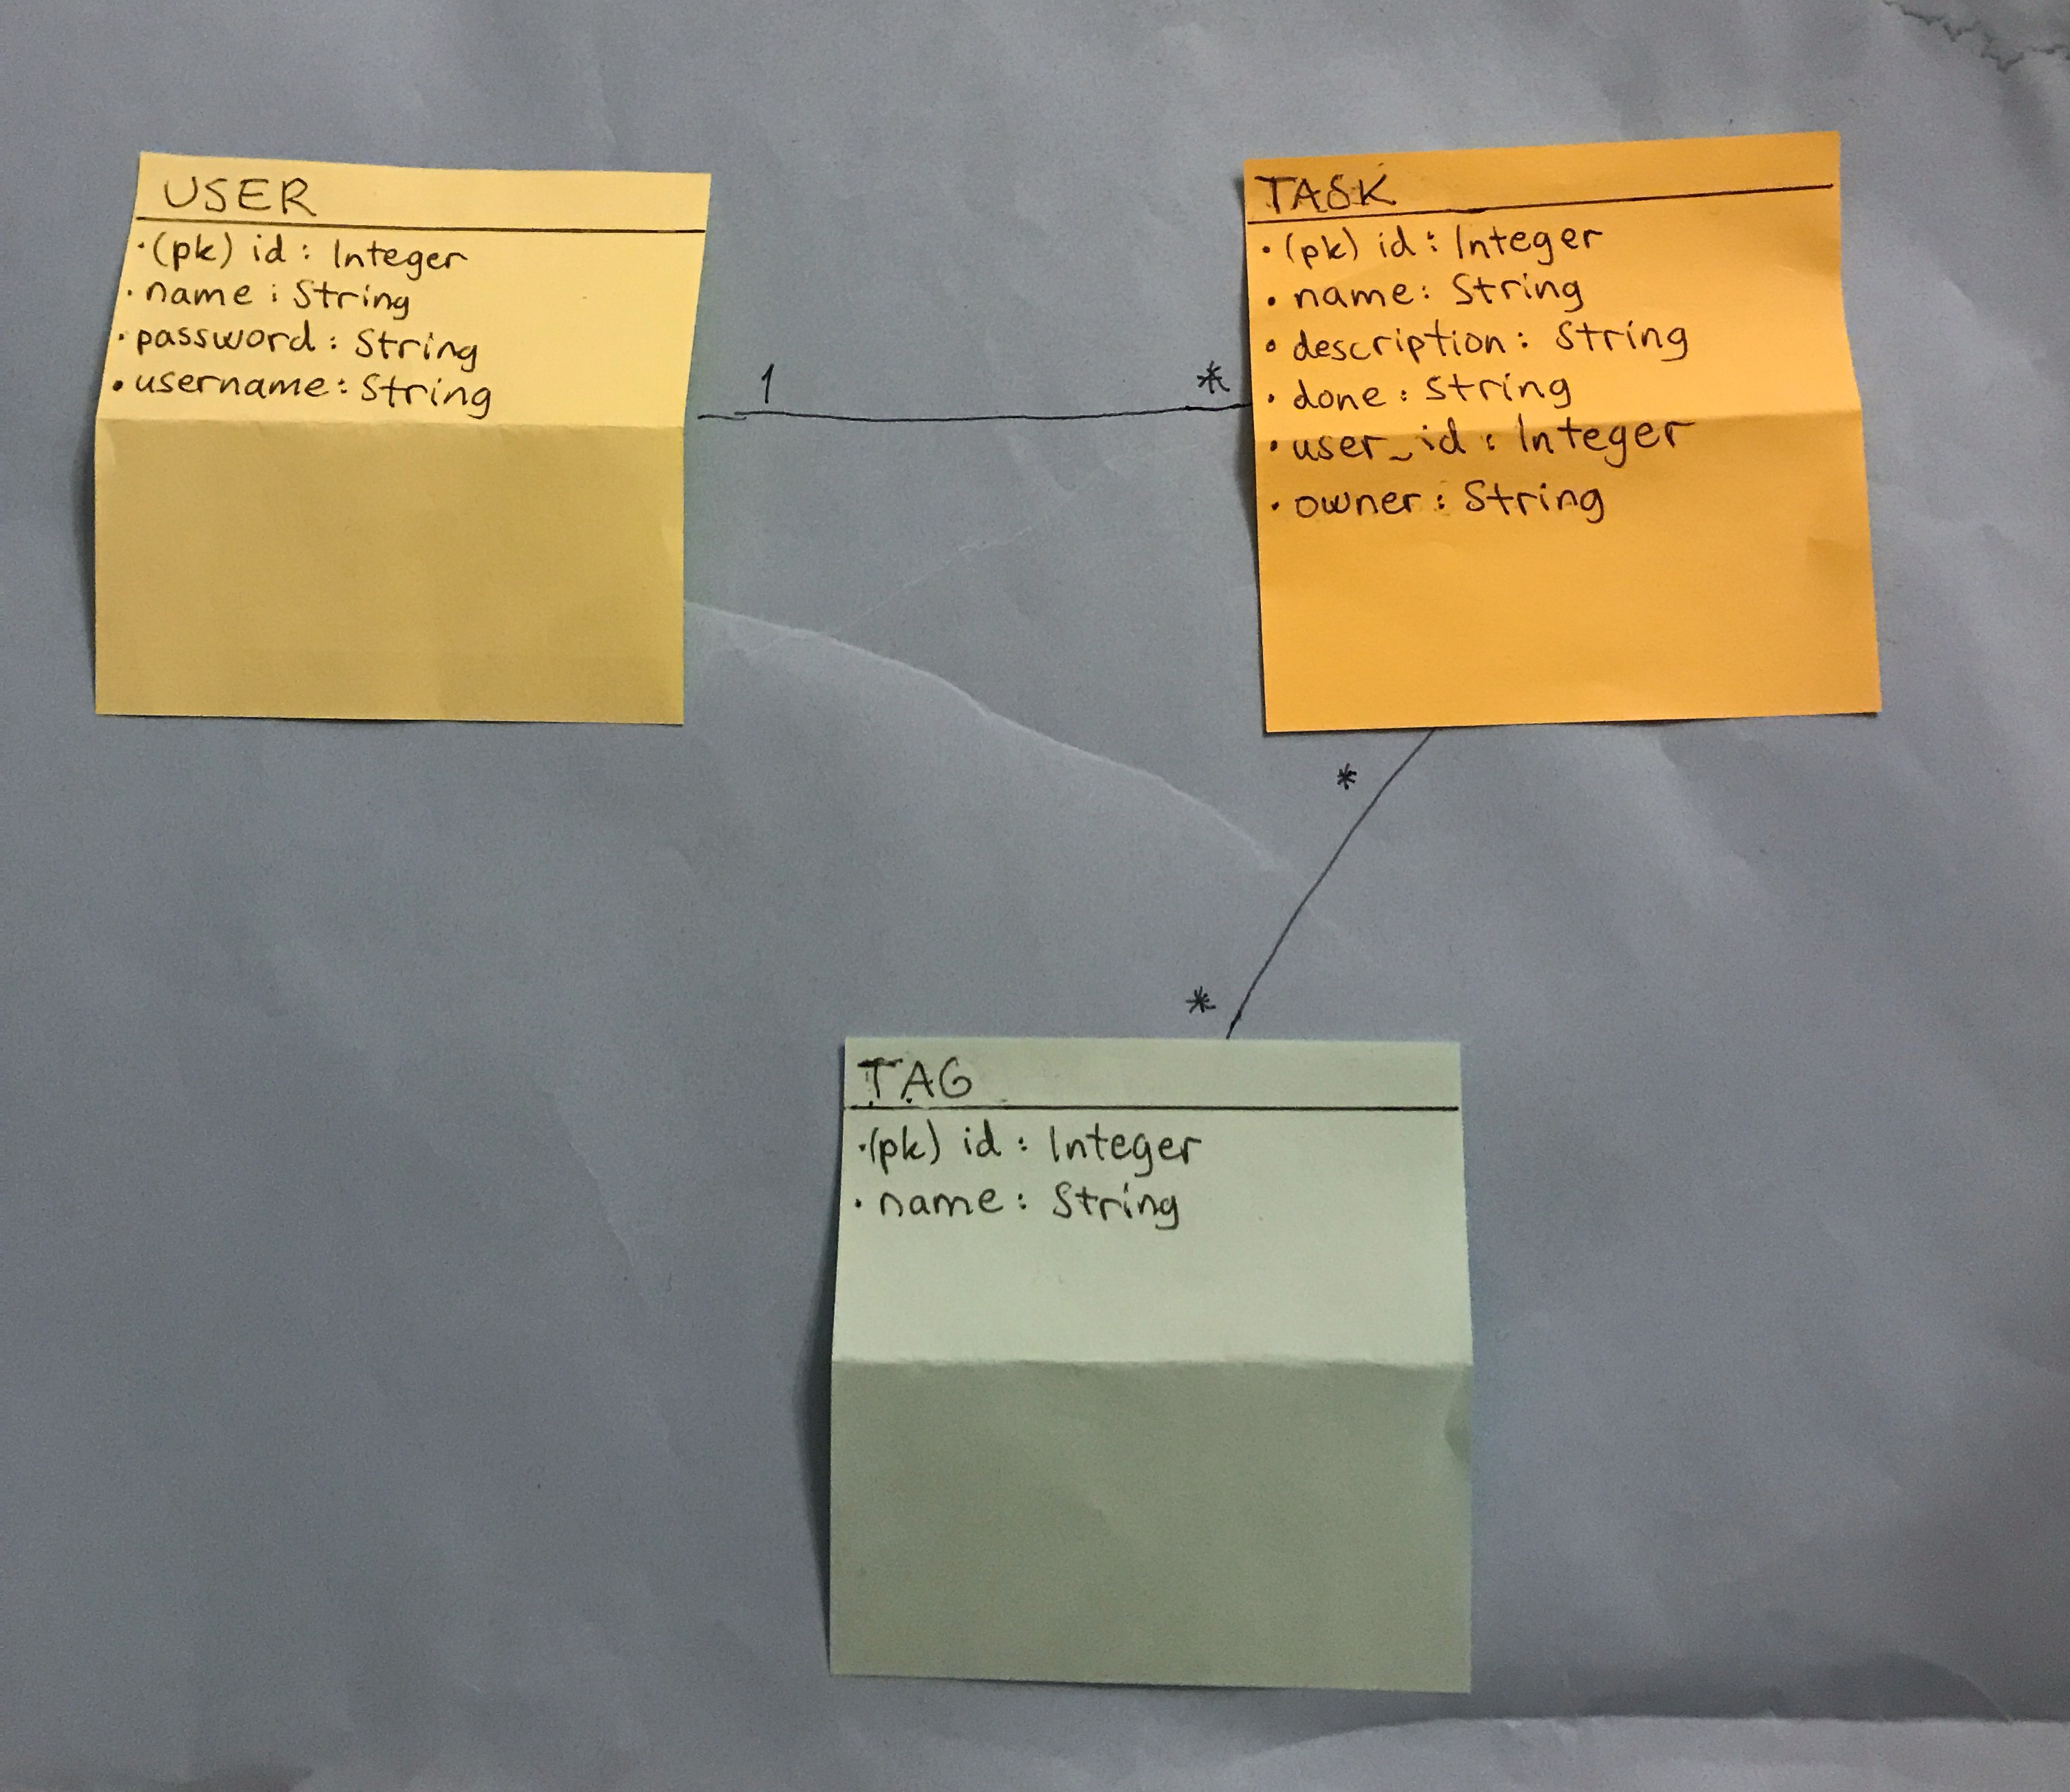 USER
·(pk) id : Integer
·name : String
·password : String
·username : String
1
*
TASK
·(pk) id : Integer
·name : String
·description : String
·done : String
·user_id : Integer
·owner : String
*
*
TAG
·(pk) id : Integer
·name : String